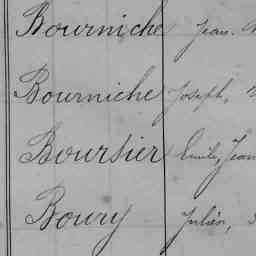 Bourniche Jean.
Bourniche Joseph,
Boursier Emile, Jean
Boury Julien,